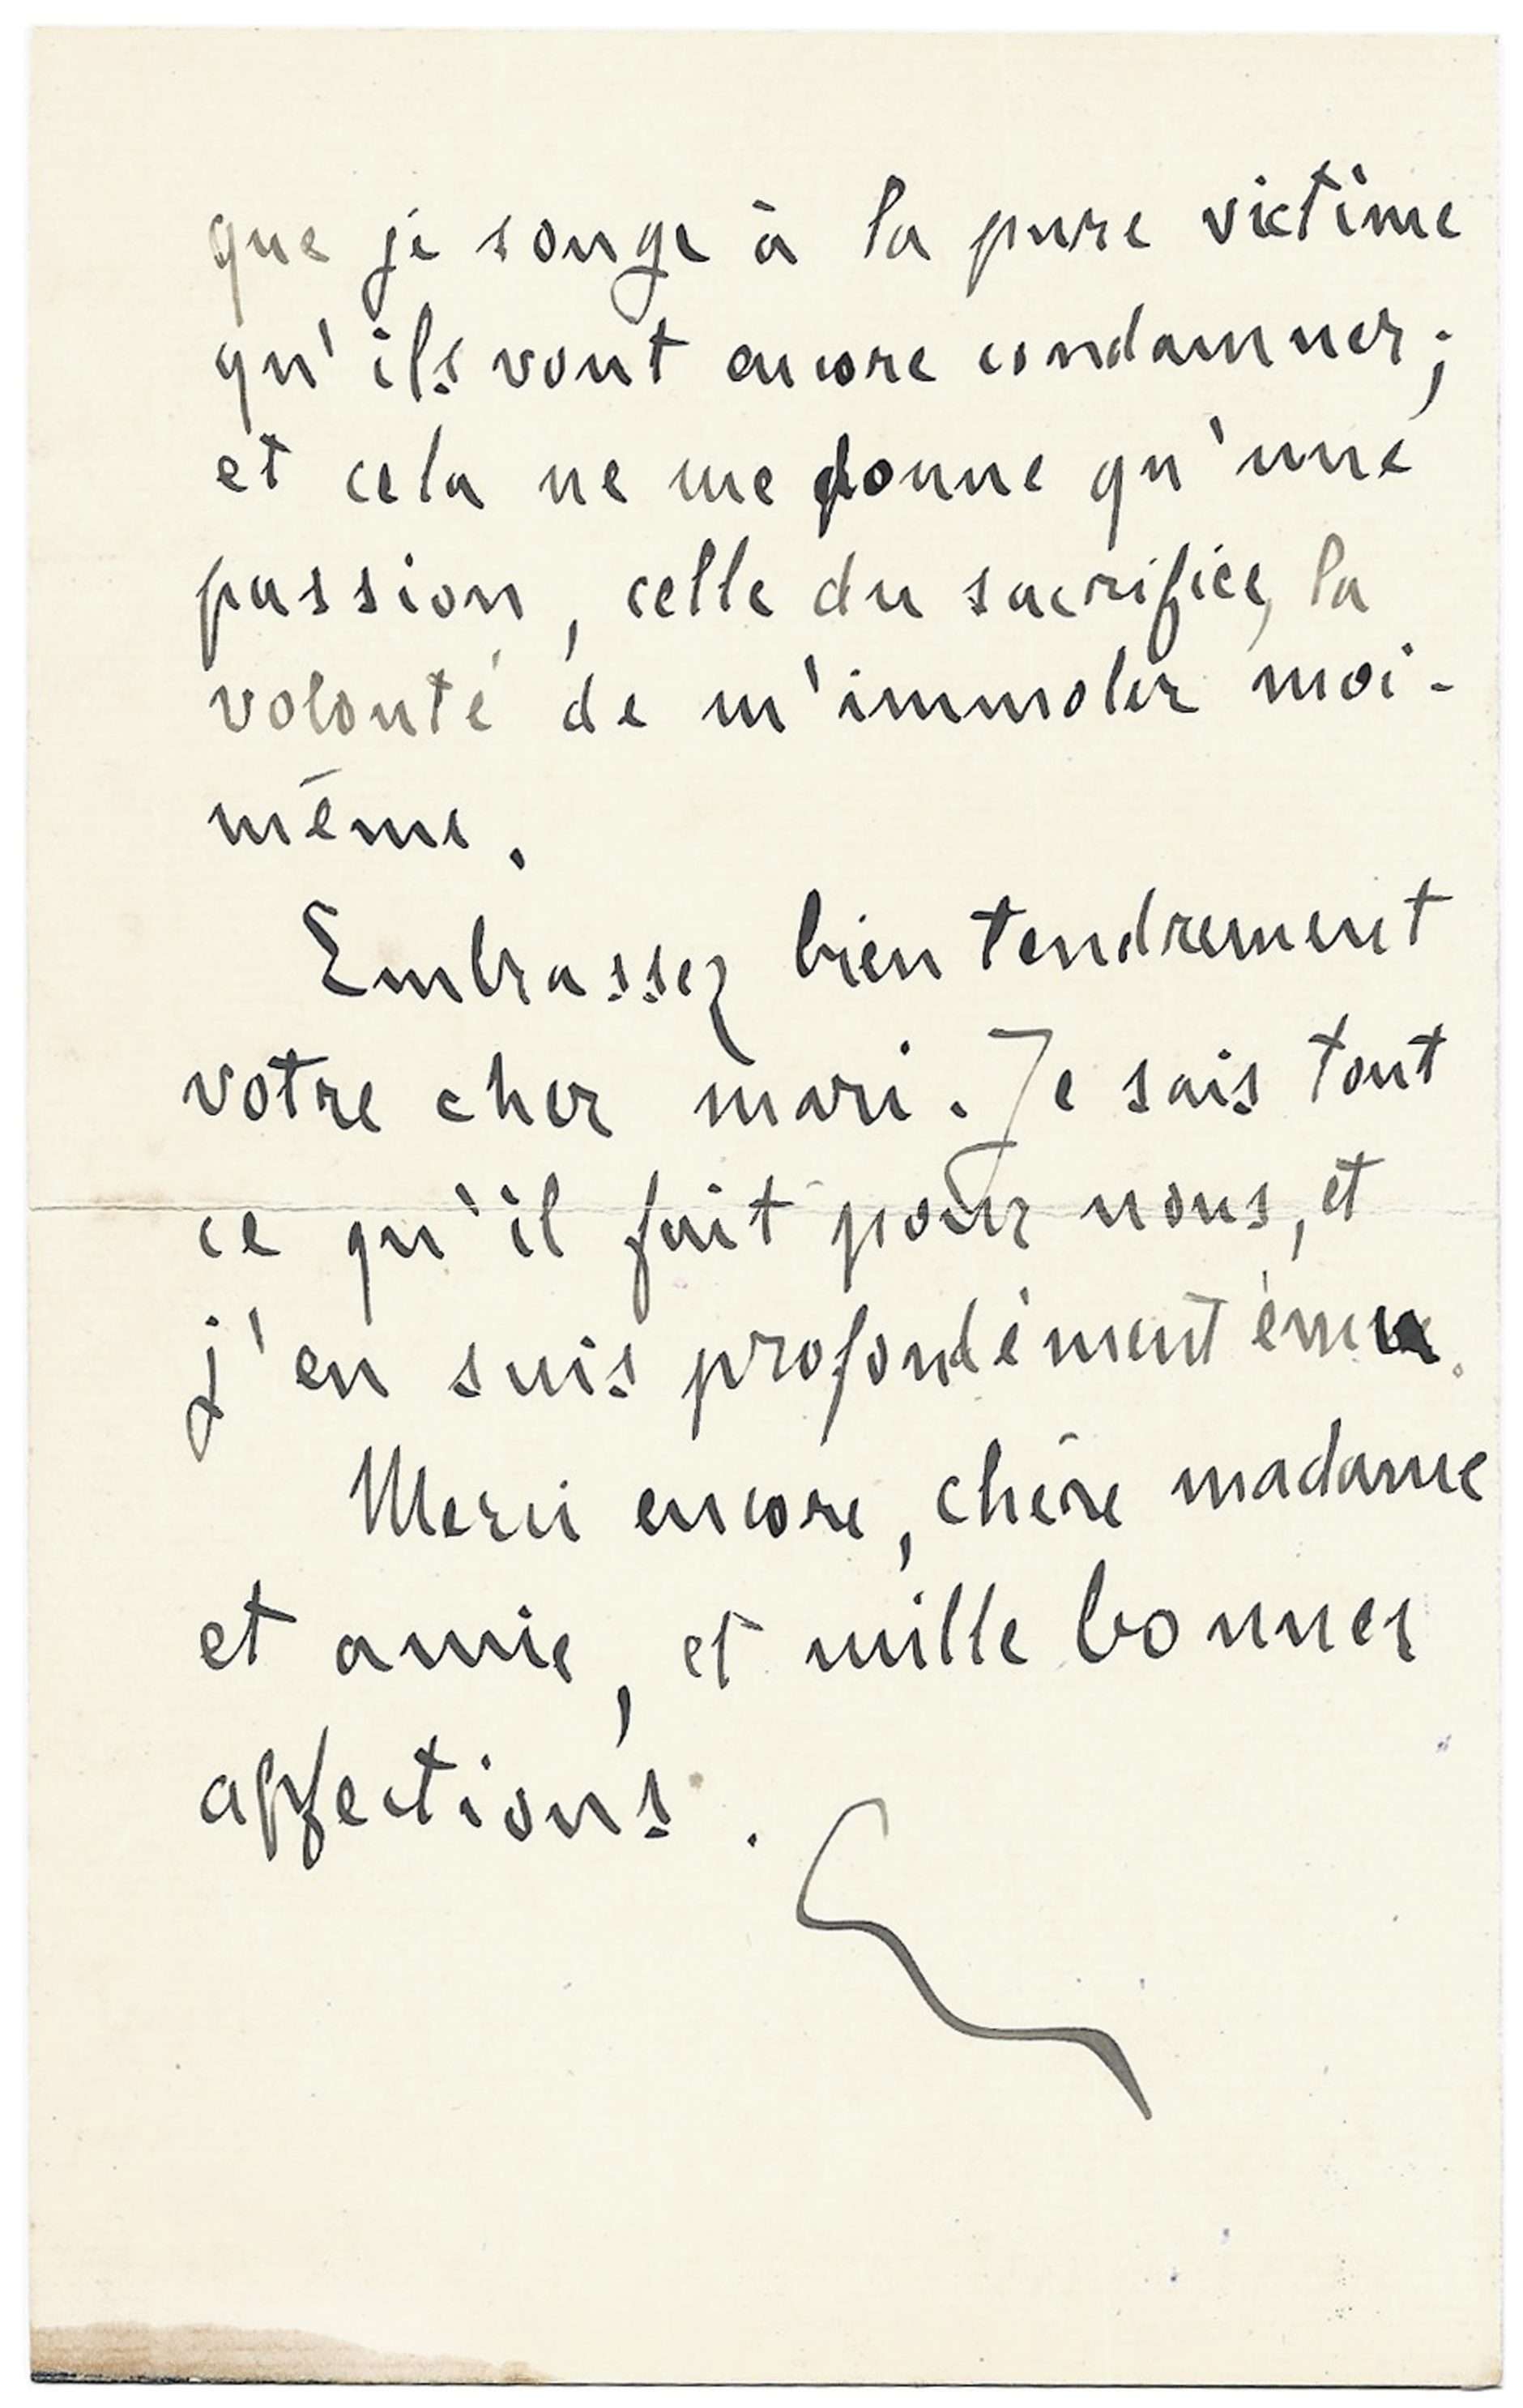 que je songe à la pure victime
qu'ils vont encore condamner;
et cela ne me donne qu'une
passion, celle du sacrifice, la
volonté de m'immoler moi-
même.
Embrassez bien tendrement
votre cher mari. Je sais tout
ce qu'il fait pour nous, et
j'en suis profondément ému.
Merci encore, chère madame
et amie, et mille bonnes
affections.